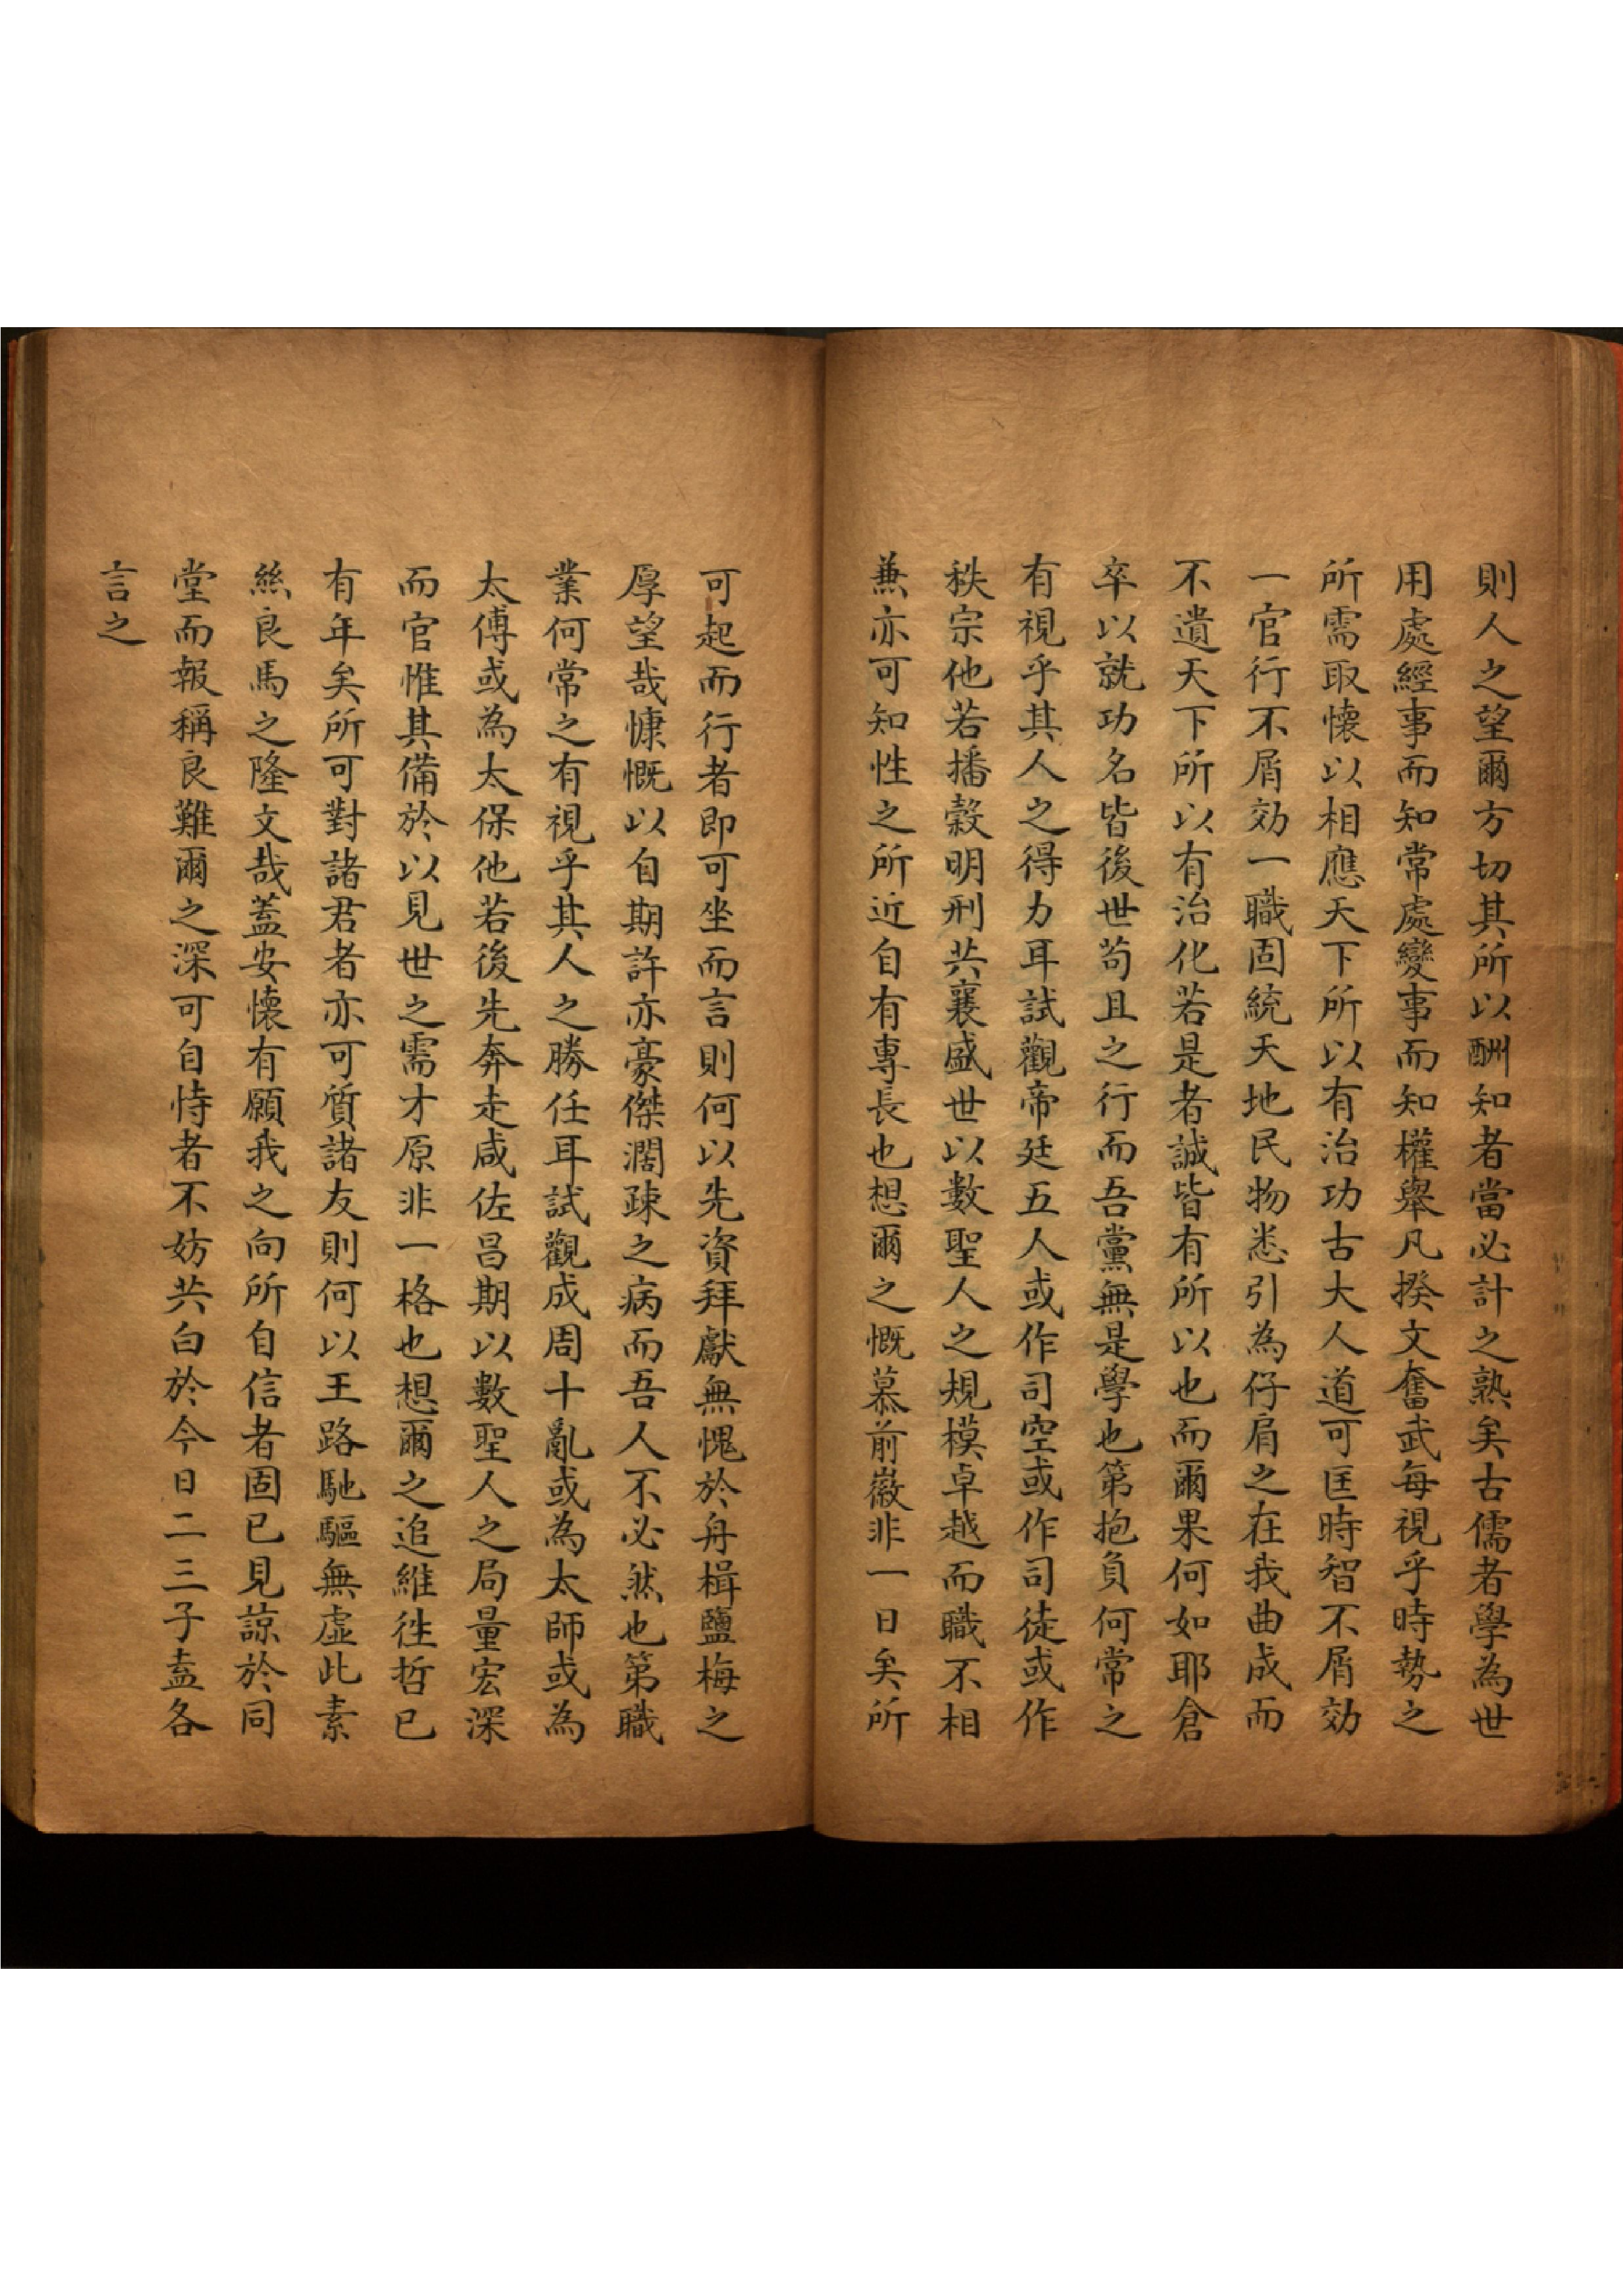 則人之望爾方切其所以酬知者當必計之熟矣古儒者學為世
用處經事而知常處變事而知權舉凡揆文奮武每視乎時勢之
所需取懷以相應天下所以有治功古大人道可匡時智不屑效
一官行不屑効一職固統天地民物悉引為仔肩之在我曲成而
不遺天下所以有治化若是者誠皆有所以也而爾果何如耶倉
卒以就功名皆後世苟且之行而吾黨無是學也第抱負何常之
有視乎其人之得力耳試觀帝廷五人或作司空或作司徒或作
秩宗他若播穀明刑共襄盛世以數聖人之規模卓越而職不相
蕪亦可知性之所近自有專長也想爾之慨慕前徽非一日矣所
可起而行者即可坐而言則何以先資拜獻無愧於舟楫鹽梅之
厚望哉慷慨以自期許亦豪傑濶疎之病而吾人不必然也第職
業何常之有視乎其人之勝任耳試觀成周十亂或為太師或為
太傅或為太保他若後先奔走咸佐昌期以數聖人之局量宏深
而官惟其備於以見世之需才原非一格也想爾之追維徃哲已
有年矣所可對諸君者亦可質諸友則何以王路馳驅無虛此素
絲良馬之隆文哉蓋安懷有願我之向所自信者固已見諒於同
堂而報稱良難爾之深可自恃者不妨共白於今日二三子盍各
言之